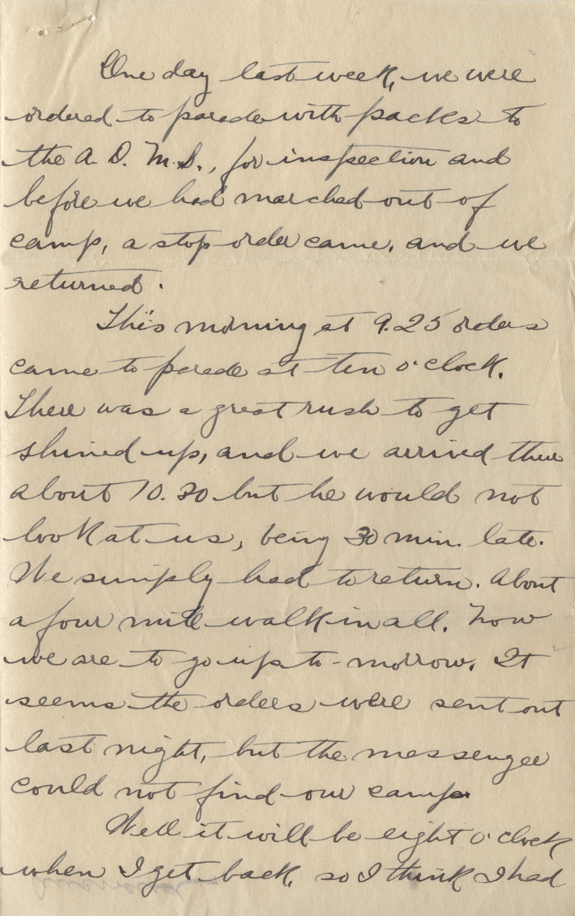 One day last week, we were
ordered to parade with packs to
the A. D. M. S., for inspection and
before we had marched out of
camp, a stop order came, and we
returned.
This morning at 9.25 orders
came to parade at ten o'clock.
There was a great rush to get
shined up, and we arrived there
about 10.30 but he would not
look at us, being 30 min. late.
We simply had to return. About
a four mile walk in all. Now
we are to go up to-morrow. It
seems the orders were sent out
last night, but the messenger
could not find our camp.
Well it will be eight o'clock
when I get back, so I think I had